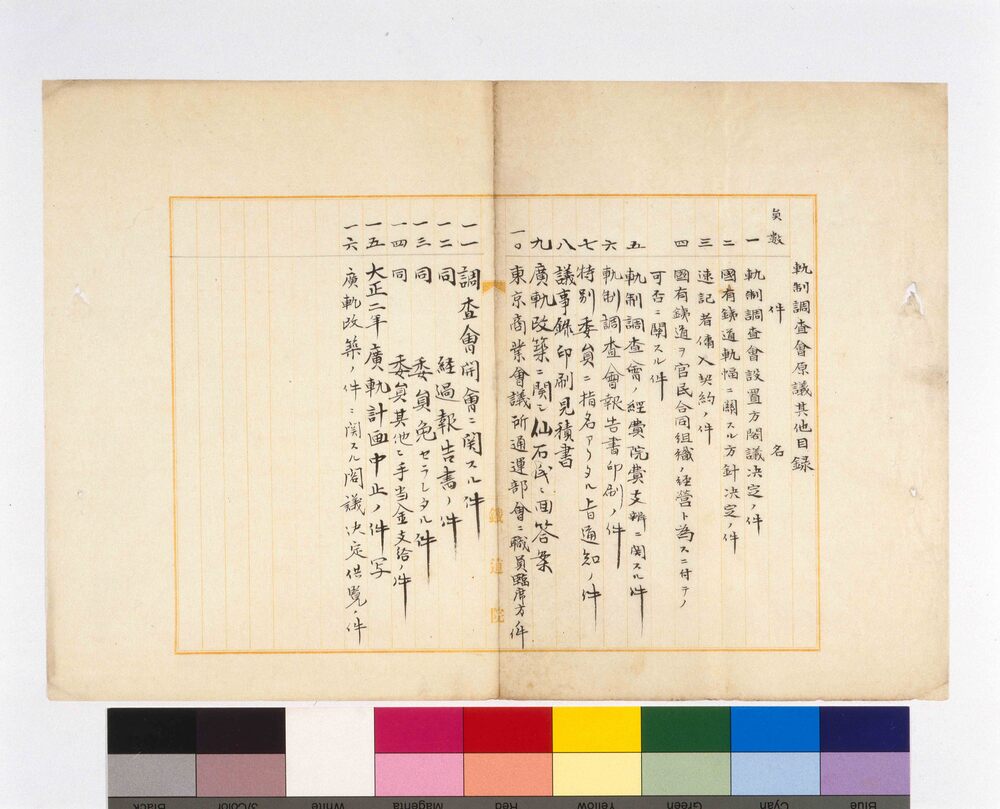 軌制調査會原議其他目録
員數 件 名
一 軌制調査會設置方閣議决定ノ件
二 國有鉄道軌幅ニ關スル方針决定ノ件
三 速記者傭入契約ノ件
四 國有鉄道ヲ官民合同組織ノ経営ト為スニ付テノ
可否ニ關スル件
五 軌制調査會ノ経費院費支辨ニ関スル件
六 軌制調査會報告書印刷ノ件
七 特別委員ニ指名アリタル旨通知ノ件
八 議事録印刷見積書
九 廣軌改築ニ関シ仙石氏ニ回答案
一〇 東京商業會議所通運部會ニ職員臨席方ノ件
一一 調査會開會ニ関スル件
一二 同 経過報告書ノ件
一三 同 委員免セラレタル件
一四 同 委員其他ニ手当金支給ノ件
一五 大正二年廣軌計画中止ノ件写
一六 廣軌改築ノ件ニ関スル閣議决定供覧ノ件
鐵道院
Black
3/Color
White
Magenta
Red
Yellow
Green
Cyan
Blue